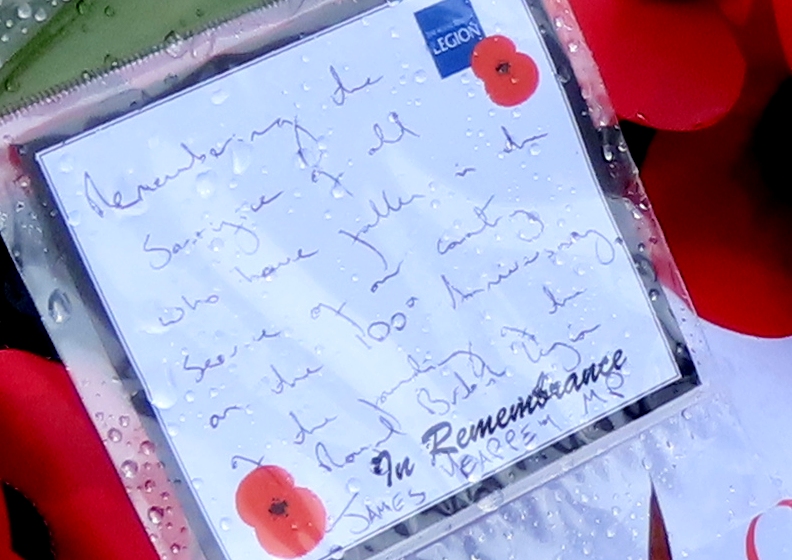 THE ROYAL BRITISH
LEGION
Remembering the
Sacrifice of all
who have fallen in the
Service of our country
on the 100th Anniversary
of the founding of the
Royal British Legion
In Remembrance
JAMES MP